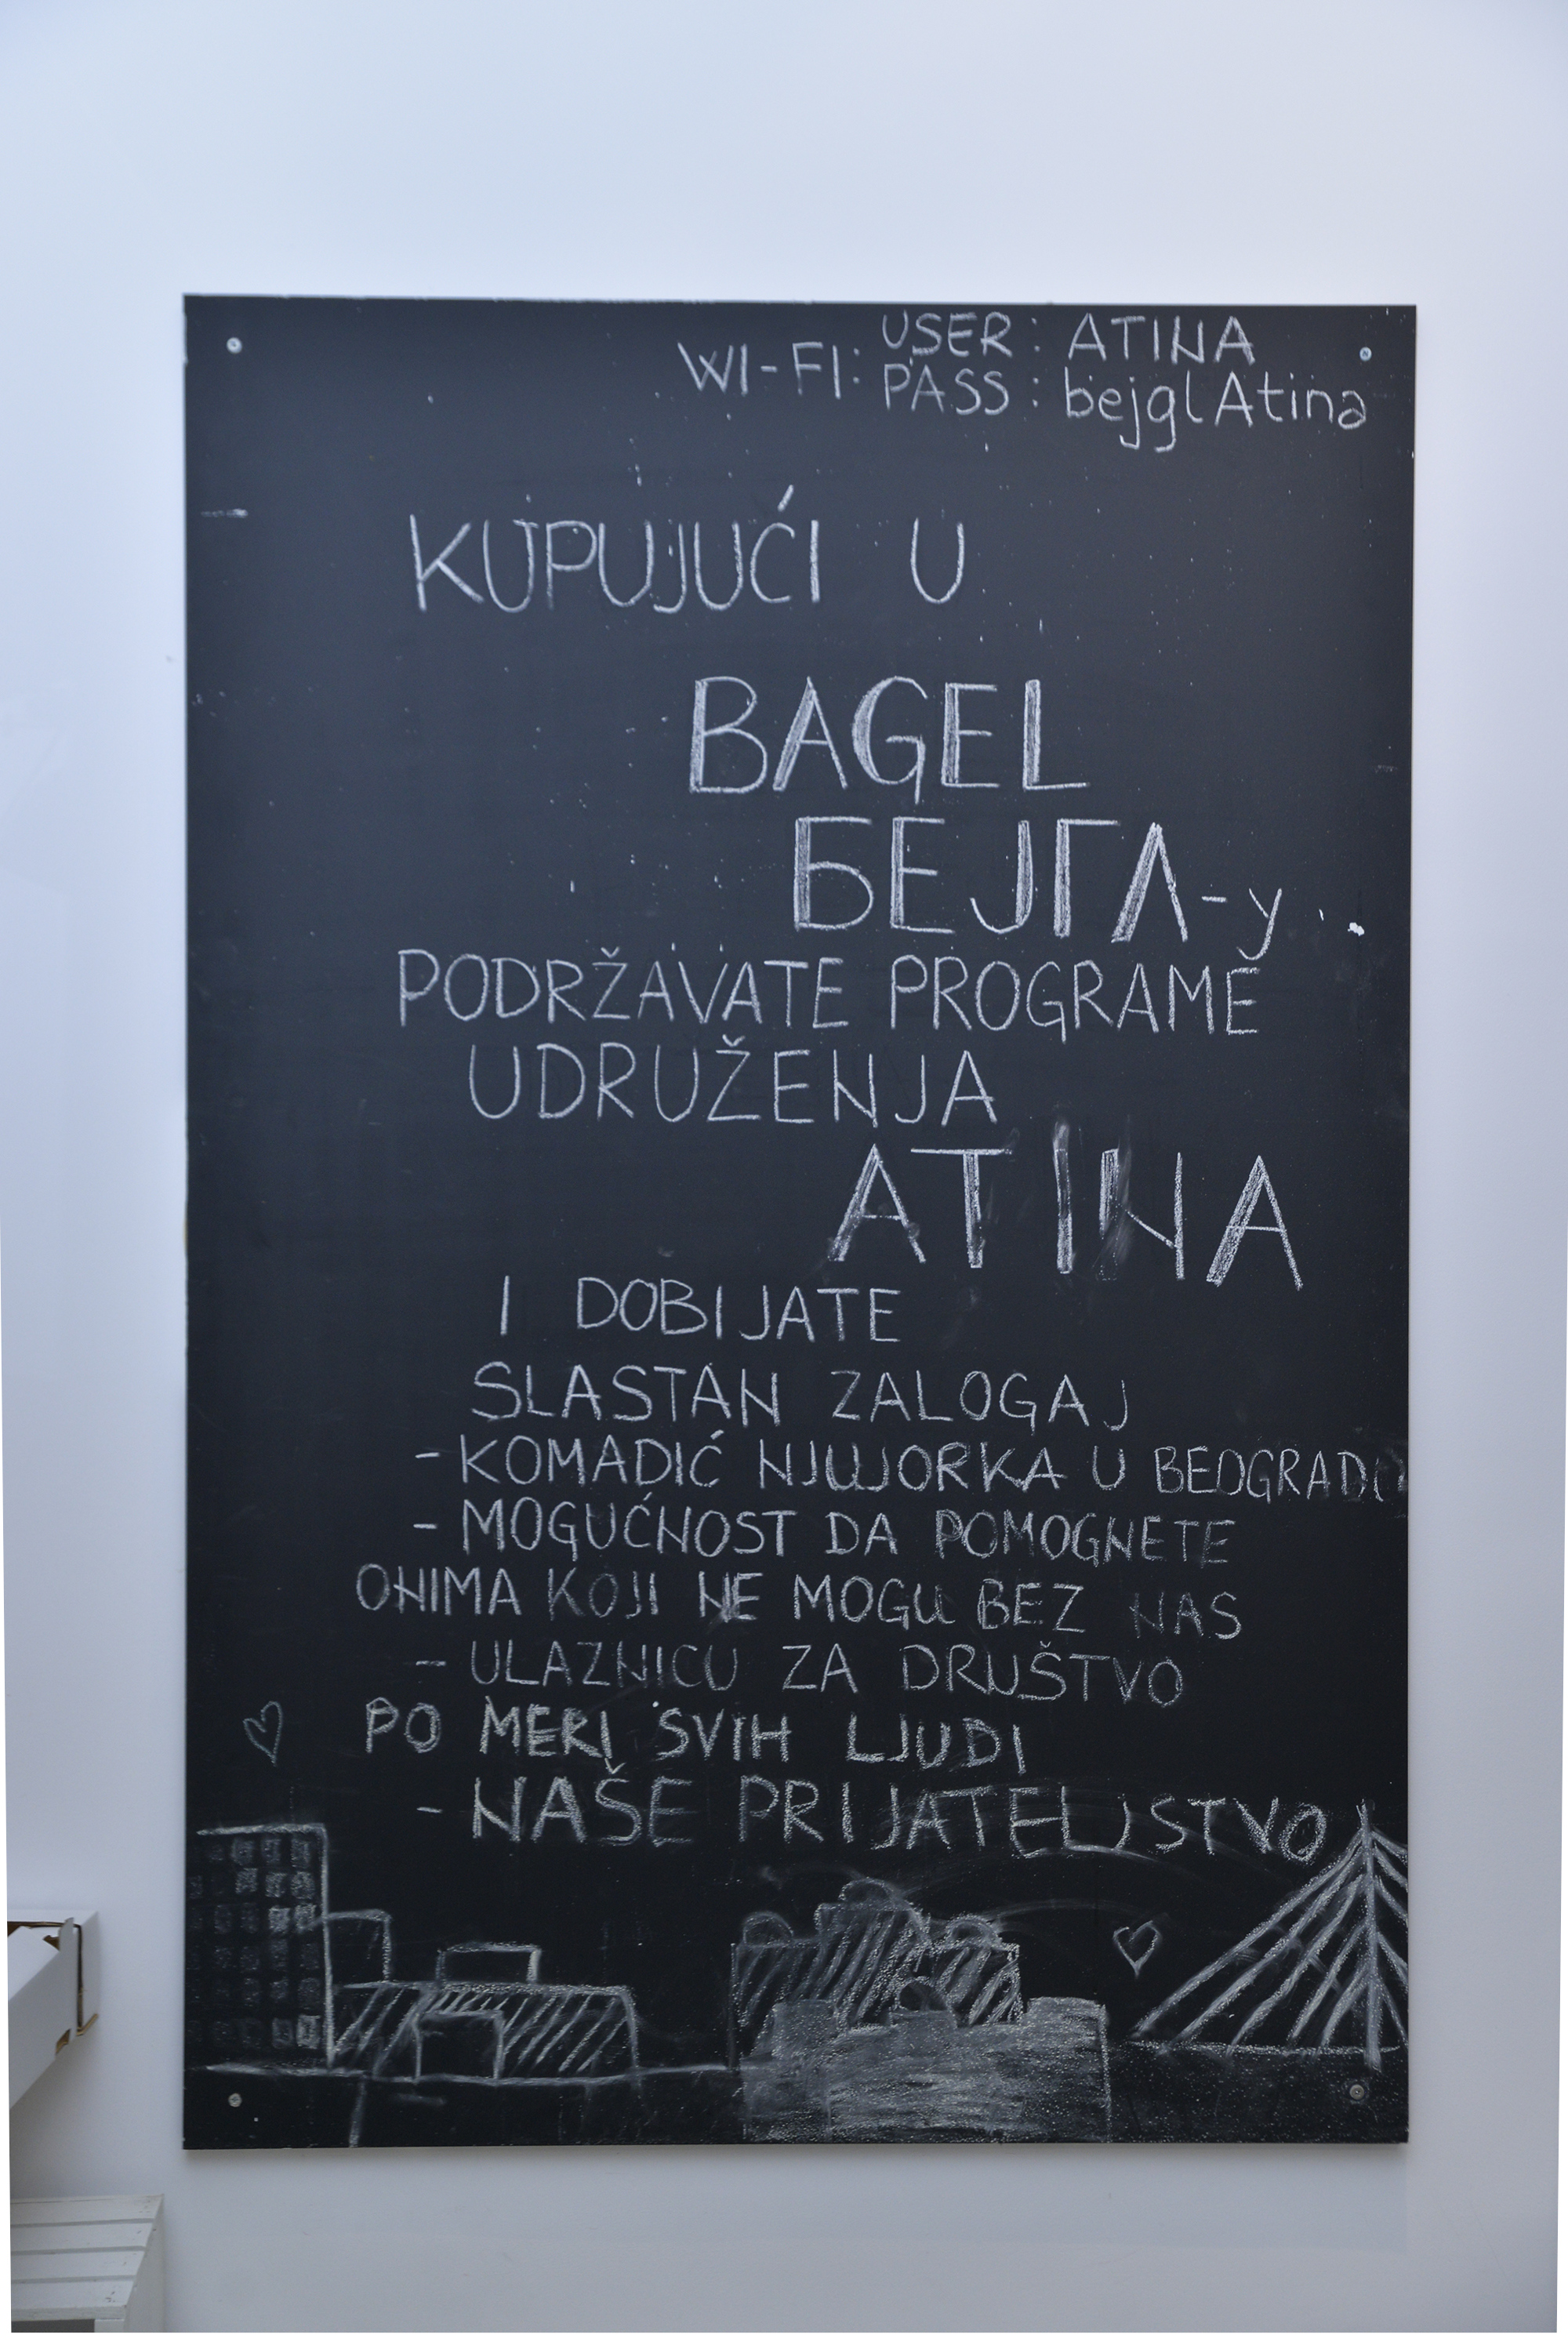 WI-FI: USER: ATINA
PASS: bejglAtina
KUPUJUĆI U
BAGEL
БЕЈГЛ-у
PODRŽAVATE PROGRAME
UDRUŽENJA
ATINA
I DOBIJATE
SLASTAN ZALOGAJ
- KOMADIĆ NJUJORKA U BEOGRADU
- MOGUĆNOST DA POMOGNETE
ONIMA KOJI NE MOGU BEZ NAS
- ULAZNICU ZA DRUŠTVO
PO MERI SVIH LJUDI
- NAŠE PRIJATELJSTVO